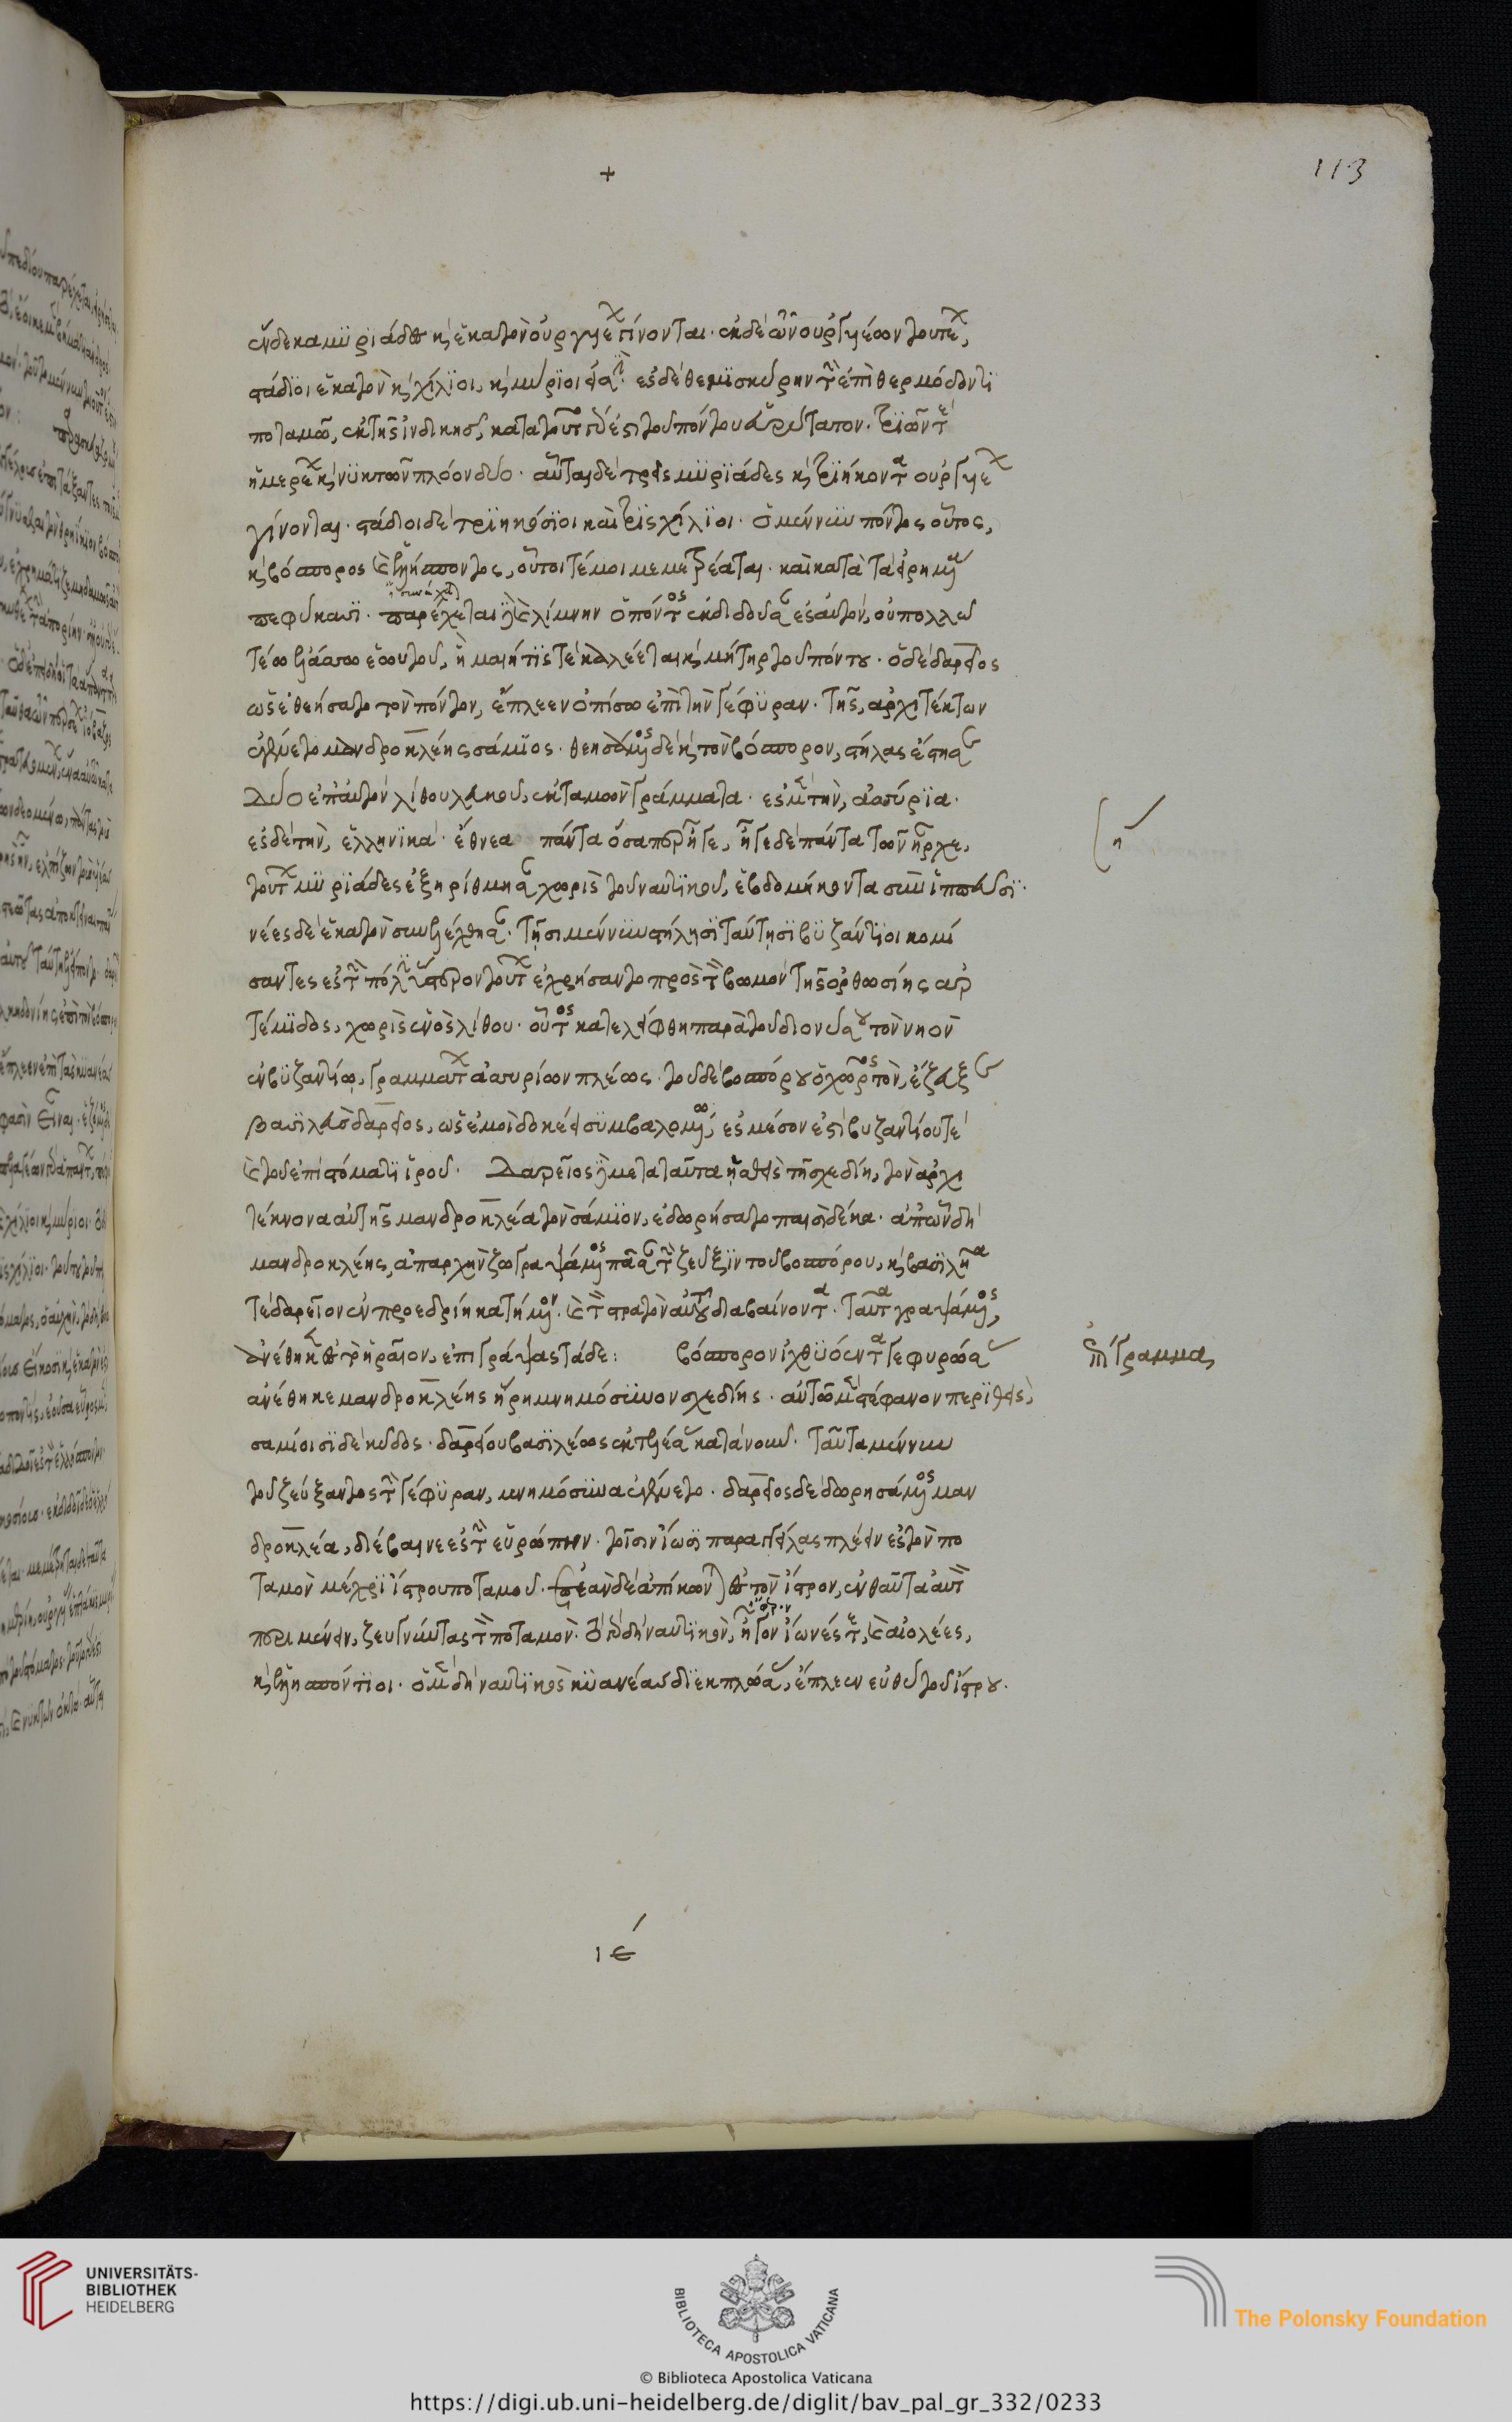 +
113
ἕνδεκα μϋριάδες κ ἑκατὸν οὐργυιέων γίνονται · ἐκ δὲ ὧν οὐργυιέων τουτέων,
στάδϊοι ἑκατὸν κ χίλϊοι, κ μύριοι εἰσί · ἐς δὲ θεμϊσκύρην τὴν ἐπὶ θερμόδοντϊ
ποταμῶ, ἐκ τῆς ἰνδικῆς, κατὰ τοῦτο γάρ ἐστι τοῦ πόντου εὐρύτατον · τριῶν τὲ
ἡμερέων κ νϋκτῶν πλόον δύο · αὗται δὲ τρεῖς μϋρϊάδες κ τρϊήκοντα οὐργυιέων
γίνονται · στάδιοι δὲ τρϊηκόσϊοι καὶ τρϊσχίλϊοι · ὁ μέν νυν πόντος οὗτος,
κ βόσπορος κ ἑλλήσποντος, οὗτοι τέ μοι μεμετρέαται · καὶ κατὰ τὰ εἰρημένα
πεφύκασϊ · παρέχεται δὲ κ λίμνην ὁ πόντος ἐκδιδοῦσαν ἐς αὐτόν, οὐ πολλῶ
τέω ἐλάσσω ἑωυτοῦ, ἣ μαιήτϊς τὲ καλέεται κ μήτηρ τοῦ πόντου · ὁ δὲ δαρεῖος
ὡς ἐθεήσατο τὸν πόντον, ἔπλεεν ὀπίσω ἐπὶ τὴν γέφϋραν · τῆς, ἀρχιτέκτων
ἐγένετο μανδροκλέης σάμϊος · θεησάμενος δὲ κ τὸν βόσπορον, στήλας ἔστησε
δύο ἐπ' αὐτὸν λίθου λευκοῦ, ἐνταμὼν γράμματα · ἐς μὲν τὴν, ἀσσύρϊα ·
ἐς δὲ τὴν, ἑλληνϊκὰ · ἔθνεα πάντα ὅσα περ ἦγε, ἦγε δὲ πάντα τῶν ἦρχε,
τουτέων μϋρϊάδες ἐξηρίθμησαν χωρὶς τοῦ ναυτϊκοῦ, ἑβδομήκοντα σὺν ἱππεῦσϊ ·
νέες δὲ ἑκατὸν συνελέχθησαν · τῆσι μέν νυν στήλησϊ ταύτησϊ βϋζάντϊοι κομί
σαντες ἐς τὴν πόλιν ὕστερον τουτέων ἐχρήσαντο πρὸς τὸν βωμὸν τῆς ὀρθωσίης ἀρ
τέμϊδος, χωρὶς ἑνὸς λίθου · οὗτος κατελείφθη παρὰ τοῦ διονύσου τὸν νηὸν
ἐν βϋζαντίω, γραμμάτων ἀσσυρίων πλέως · τοῦ δὲ βοσπόρου ὁ χῶρος τὸν ἔζευξε
βασϊλεὺς δαρεῖος, ὡς ἐμοὶ δοκέει σϋμβαλομένω, ἐς μέσον ἐστὶ βυζαντίου τε
κ τοῦ ἐπὶ στόματϊ ἱροῦ · Δαρεῖος δὲ μετὰ ταῦτα ἡσθεὶς τῆ σχεδίη, τὸν ἀρχι
τέκτονα αὐτῆς μανδροκλέα τὸν σάμϊον, ἐδωρήσατο πᾶσι δέκα · ἀπ' ὧν δὴ
μανδροκλέης, ἀπαρχὴν ζωγραψάμενος πᾶσαν τὴν ζεῦξϊν τοῦ βοσπόρου, κ βασϊλῆα
τὲ δαρεῖον ἐν προεδρίη κατήμενον · κ τὸν στρατὸν αὐτοῦ διαβαίνοντα · ταῦτα γραψάμενος,
ἀνέθηκεν ἐς τὸ ἥραιον, ἐπιγράψας τάδε : βόσπορον ἰχθϋόεντα γεφυρώσας
ἀνέθηκε μανδροκλέης ἥρη μνημόσϋνον σχεδίης · αὑτῶ μὲν στέφανον περϊθεὶς,
σαμίοισϊ δὲ κῦδος · δαρείου βασϊλέως ἐκτελέσας κατὰ νοῦν · ταῦτα μέν νυν
τοῦ ζεύξαντος τὴν γέφϋραν, μνημόσϋνα ἐγένετο · δαρεῖος δὲ δωρησάμενος μαν
δροκλέα, διέβαινε ἐς τὴν εὐρώπην · τοῖσιν ἴωσϊ παραγγείλας πλέειν ἐς τὸν πο
ταμὸν μέχρϊ ἴστρου ποταμοῦ · ἐπεὰν δὲ ἀπίκωνται ἐς τὸν ἴστρον, ἐνθαῦτα αὐτὸν
περιμένειν, ζευγνύντας τὸν ποταμόν · τὸ γὰρ δὴ ναυτϊκὸν, ἦγον ἴωνές τὲ, κ αἰολέες,
κ ἑλλησπόντϊοι · ὁ μὲν δὴ ναυτϊκὸς κϋανέας διεκπλώσας, ἔπλεεν εὐθὺ τοῦ ἴστρου ·
ἐπίγραμμα
ιε΄
UNIVERSITÄTS-
BIBLIOTHEK
HEIDELBERG
BIBLIOTECA APOSTOLICA VATICANA
The Polonsky Foundation
© Biblioteca Apostolica Vaticana
https://digi.ub.uni-heidelberg.de/diglit/bav_pal_gr_332/0233